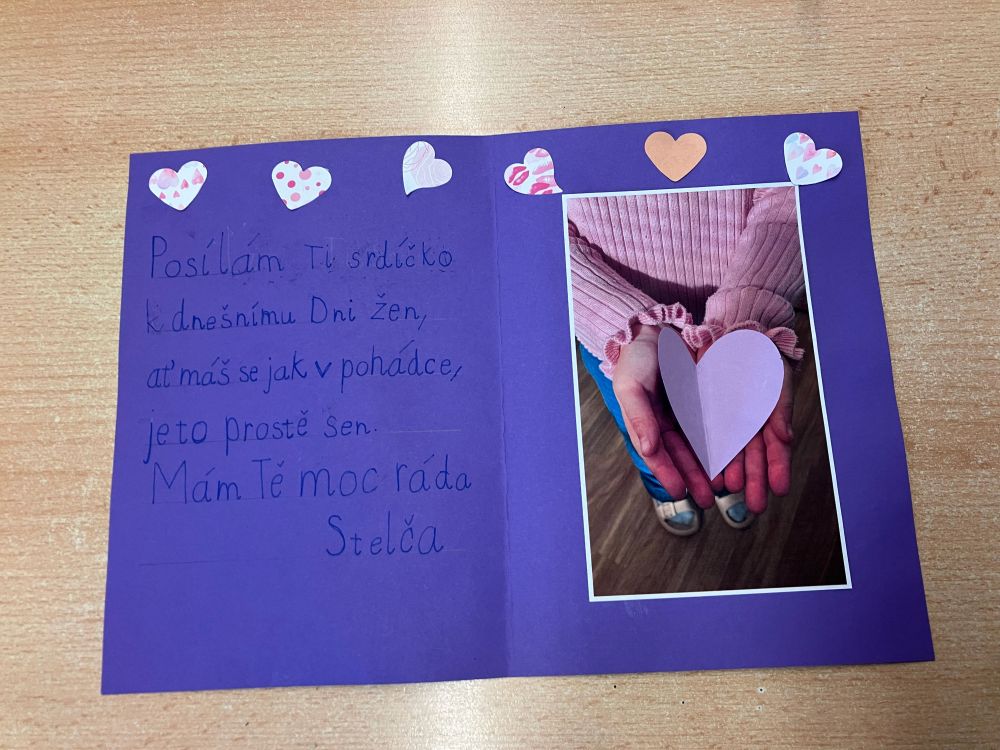 Posílám Ti srdíčko
k dnešnímu Dni žen,
ať máš se jak v pohádce,
je to prostě sen.
Mám Tě moc ráda
Stelča